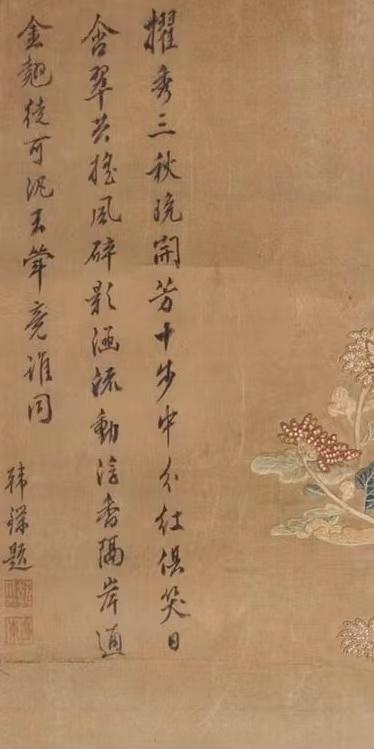 擢秀三秋晚開芳十步中分俱笑日
含翠共搖風碎影涵流動浮香隔岸通
金翹徒可泛玉斝竟誰同
韓題